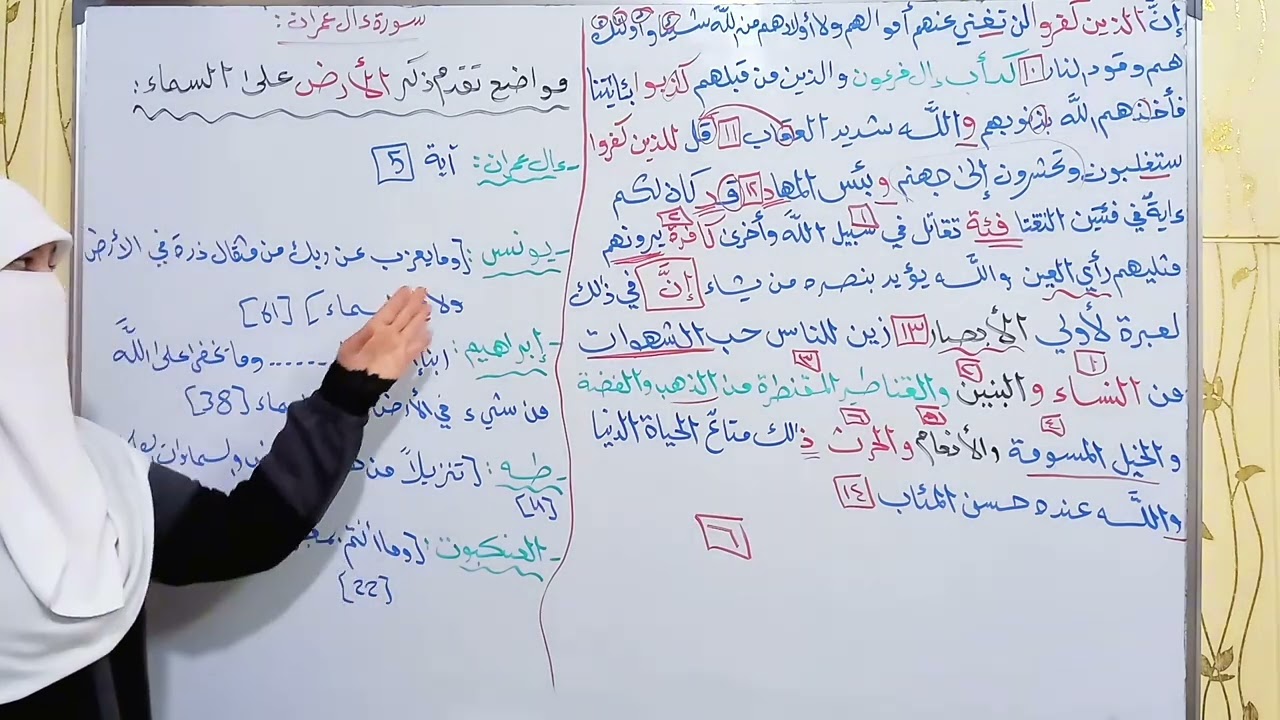 إنَّ الذين كفروا لن تغني عنهم أموالهم ولا أولادهم من الله شيئا وأولئك
هم وقود النار ١٠ كدأب ءال فرعون والذين من قبلهم كذبوا بئايتنا
فأخذهم الله بذنوبهم والله شديد العقاب ١١ قل للذين كفروا
ستغلبون وتحشرون إلى جهنم وبئس المهاد ١٢ قد كان لكم
ءاية في فئتين التقتا فئة تقاتل في سبيل الله وأخرى كافرة يرونهم
١ ٢
مثليهم رأي العين والله يؤيد بنصره من يشاء إنَّ في ذلك
لعبرة لأولي الأبصار ١٣ زين للناس حب الشهوات
١ ٢ ٣
من النساء والبنين والقناطير المقنطرة من الذهب والفضة
٤ ٥ ٦
والخيل المسومة والأنعام والحرث ذلك متاع الحياة الدنيا
والله عنده حسن المئاب ١٤
٦
سورة ءال عمران:
مواضع تقدم ذكر الأرض على السماء:
- ءال عمران: آية 5
- يونس: [وما يعزب عن ربك من مثقال ذرة في الأرض
ولا السماء] [61]
- إبراهيم: ...... وما يخفى على الله
من شيء في الأرض [38]
- طه: [تنزيلاً
- العنكبوت: [وما أنتم
[22]